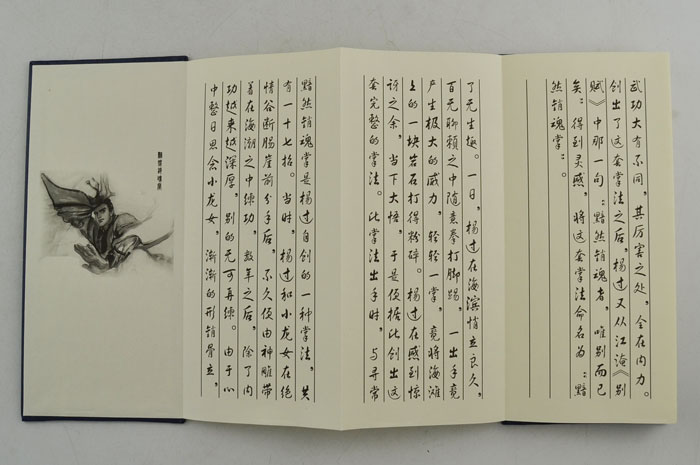 黯然销魂掌
黯然销魂掌是杨过自创的一种掌法，共
有一十七招。当时，杨过和小龙女在绝
情谷断肠崖前分手后，不久便由神雕带
着在海潮之中练功，数年之后，除了内
功越来越深厚，别的无可再练。由于心
中整日思念小龙女，渐渐的形销骨立，
了无生趣。一日，杨过在海滨悄立良久，
百无聊赖之中随意拳打脚踢，一出手竟
产生极大的威力，轻轻一掌，竟将海滩
上的一块岩石打得粉碎。杨过在感到惊
讶之余，当下大悟，于是便据此创出这
套完整的掌法。此掌法出手时，与寻常
武功大有不同，其厉害之处，全在内力。
创出了这套掌法之后，杨过又从江淹《别
赋》中那一句：黯然销魂者，唯别而已
矣：得到灵感，将这套掌法命名为：黯
然销魂掌：。